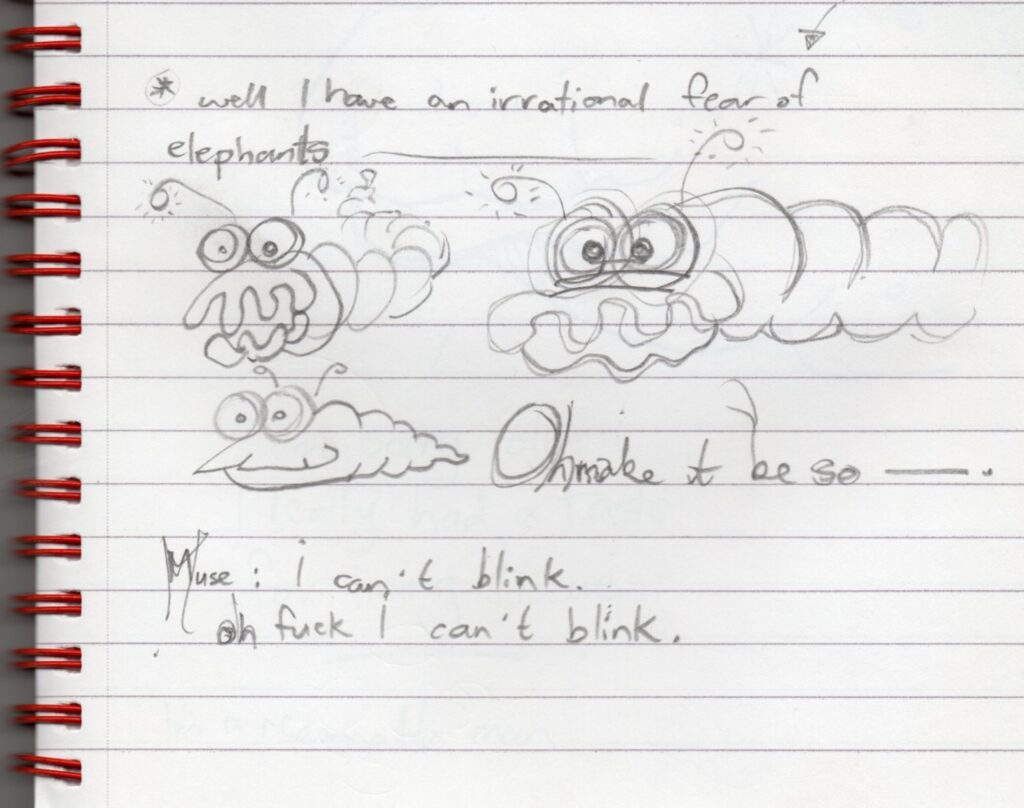 * well I have an irrational fear of
elephants
Oh make it be so —.
Muse: i can't blink.
oh fuck I can't blink.